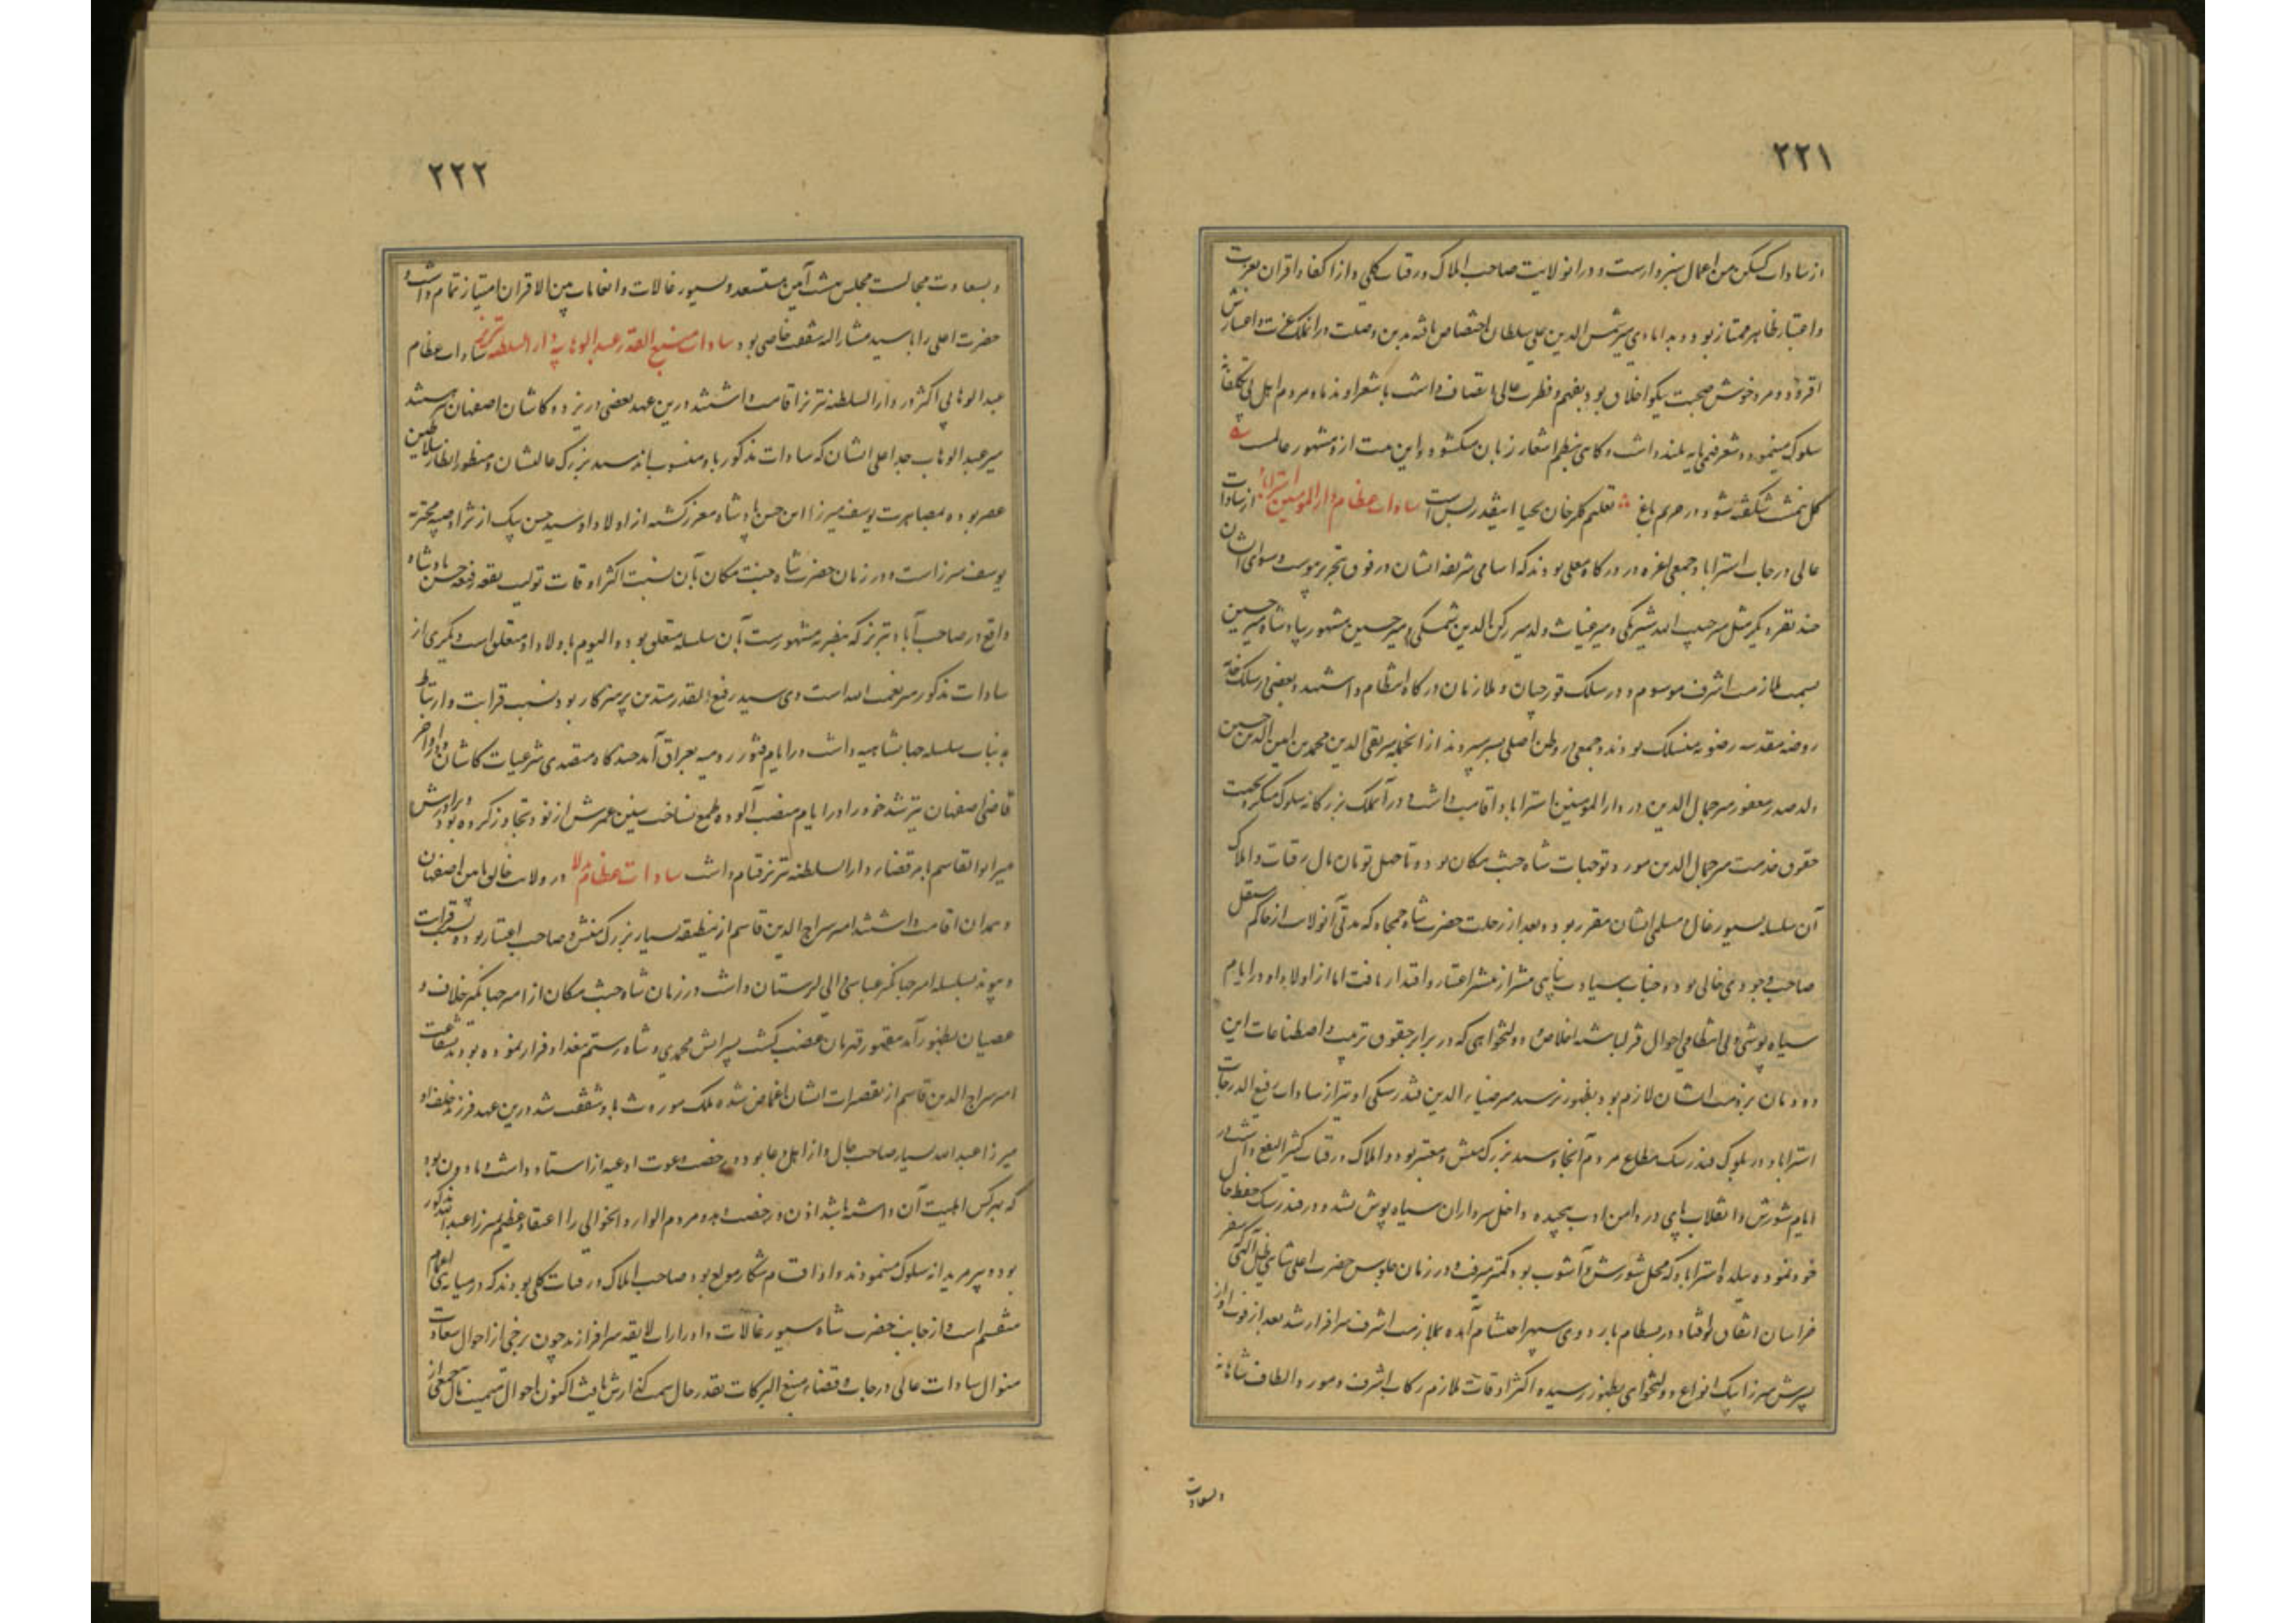 ۲۲۱
از سادات کسکن من اعمال سبزوارست و در انولایت صاحب املاک و رقبات کلی و از اکفا و اقران بعزت
و اعتبار ظاهر ممتاز بود و بدامادی میر شمس الدین علی سلطان اختصاص یافته بدین وصلت در انملک عزت و اعتبارش
افزود و مرد خوش صحبت نیکو اخلاق بود بفهم و فطرت عالی اتصاف داشت با شعرا و ندما و مردم اهل بی تکلفانه
سلوک مینمود و شعر فهمی پایه بلند داشت و کاهی بنظم اشعار زبان میکشود و این بیت ازو مشهور عالمست
کل بنفشه شکفته شود در حریم باغ تعلیم کلرخان بحیا اینقدر بس است سادات عظام دار المومنین استراباد از سادات
عالی درجات استراباد جمعی اعزه در درکاه معلی بودند که اسامی شریفه ایشان در فوق تحریر پیوست و سوای ایشان
چند نفر دیکر مثل میر حبیب الله شیرنکی و میر غیاث ولد میر رکن الدین شمسکی و میر حسین مشهور بپادشاه میر حسین
بسمت ملازمت اشرف موسوم و در سلک قورچیان و ملازمان درکاه انتظام داشتند و بعضی در سلک خدمه
روضه مقدسه رضویه منسلک بودند و جمعی در وطن اصلی بسر میبردند از انجمله میر تقی الدین محمد بن امین الدین حسین
ولد صدر مغفور میر جمال الدین در دار المومنین استراباد اقامت داشت و در آنملک بزرکانه سلوک میکرد بجهت
حقوق خدمت میر جمال الدین مورد توجهات شاه جنت مکان بود و تا چهل تومان مال رقبات و املاک
آن سلسله بسیورغال و مسلمی ایشان مقرر بود و بعد از رحلت حضرت شاه جمجاه که مدتی آنولایت از حاکم مستقل
صاحب وجودی خالی بود و جناب سیادت پناهی مشار از عشر اعتبار و اقتدار یافت اما از اولاد او در ایام
سیاه پوشی و بی انتظامی احوال قزلباش اخلاص و دولتخواهی که در برابر حقوق تربیت و اصطناعات این
دودمان بر ذمت ایشان لازم بود بظهور نرسید میر ضیاء الدین فندرسکی او نیز از سادات رفیع الدرجات
استراباد و در بلوک فندرسک مطاع مردم آنجا و سید بزرک منش و معتبر بود و املاک و رقبات کثیر النفع داشت در
ایام شورش و انقلاب پای در دامن ادب پیچیده داخل سرداران سیاه پوش نشد و در فندرسک حفظ حال
خود نموده ببلده استراباد که محل شورش و آشوب بود کمتر میرفت و در زمان جلوس حضرت اعلی شاهی ظل آلهی سفر
خراسان اتفاق افتاد و در بسطام باردوی سپهر احتشام آمده بملازمت اشرف سرافراز شد بعد از فوت او از
پسرش میرزا بیک انواع دولتخواهی بظهور رسیده اکثر اوقات ملازم رکاب اشرف و مورد الطاف شاهانه
وبسعادت
۲۲۲
و بسعادت مجالست مجلس بهشت آیین مستسعد و بسیورغالات و انعامات بین الاقران امتیاز تمام داشت و
حضرت اعلی را با سید مشار الیه شفقت خاصی بود سادات منیع القدر عبد الوهابیه دار السلطنه تبریز سادات عظام
عبد الوهابی اکثر در دار السلطنه تبریز اقامت داشتند درین عهد بعضی در یزد و کاشان و اصفهان هستند
میر عبد الوهاب جد اعلی ایشان که سادات مذکور باو منسوب اند سید بزرک عالیشان و منظور انظار سلاطین
عصر بوده بمصاهرت یوسف میرزا ابن حسن پادشاه معزز کشته از اولاد او سید حسن بیک از نژاد صبیه محترمه
یوسف میرزاست و در زمان حضرت شاه جنت مکان بآن نسبت اکثر اوقات تولیت بقعه رفیعه حسن پادشاه
واقع در صاحب آباد تبریز که بنصریه مشهورست بآن سلسله متعلق بوده و الیوم باولاد او متعلق است دیکری از
سادات مذکور میر نعمت الله است وی سید رفیع القدر متدین پرهیزکار بود و نسب قرابت و ارتباط
به جناب سلسله جهانشاهیه داشت در ایام فتور رومیه بعراق آمد چند کاه متصدی شرعیات کاشان و در اواخر
قاضی اصفهان نیز شد خود را در ایام منصب آلوده طمع نساخت سنین عمرش از نود تجاوز کرده بود و برادرش
میر ابو القاسم بامر قضاء دار السلطنه تبریز قیام داشت سادات عظام در ولایت خالی ما بین اصفهان
و همدان اقامت داشتند امیر سراج الدین قاسم ازین طبقه بسیار بزرک منش و صاحب اعتبار بود و نسبت قرابت
و پیوند بسلسله امیر جهانکیر عباسی والی لرستان داشت در زمان شاه جنت مکان از امیر جهانکیر خلاف و
عصیان بظهور آمد مقهور قهرمان غضب کشت پسرانش محمدی و شاه رستم ببغداد فرار نموده بودند بشفاعت
امیر سراج الدین قاسم از تقصیرات ایشان اغماض شده ملک موروث باو شفقت شد درین عهد فرزند خلف او
میرزا عبد الله بسیار صاحب حال و از اهل دعا بوده رخصت دعوت ادعیه از استاد داشت و ماذون بود
که هر کس اهلیت آن داشته باشد اذن و رخصت دهد مردم الوار و الحوالی را اعتقاد عظیم بمیرزا عبد الله مذکور
بود و پیر مریدانه سلوک مینمودند و او اقسام شکار مولع بود صاحب املاک و رقبات کلی بودند که در میانه بنی اعمام
منقسم است و از جانب حضرت شاه بسیورغالات و ادرارات لایقه سرافرازند چون برخی از احوال سعادت
منوال سادات عالی درجات و قضات منبع البرکات بقدر حال سمت کذارش یافت اکنون احوال میمنت مآل جمعی از